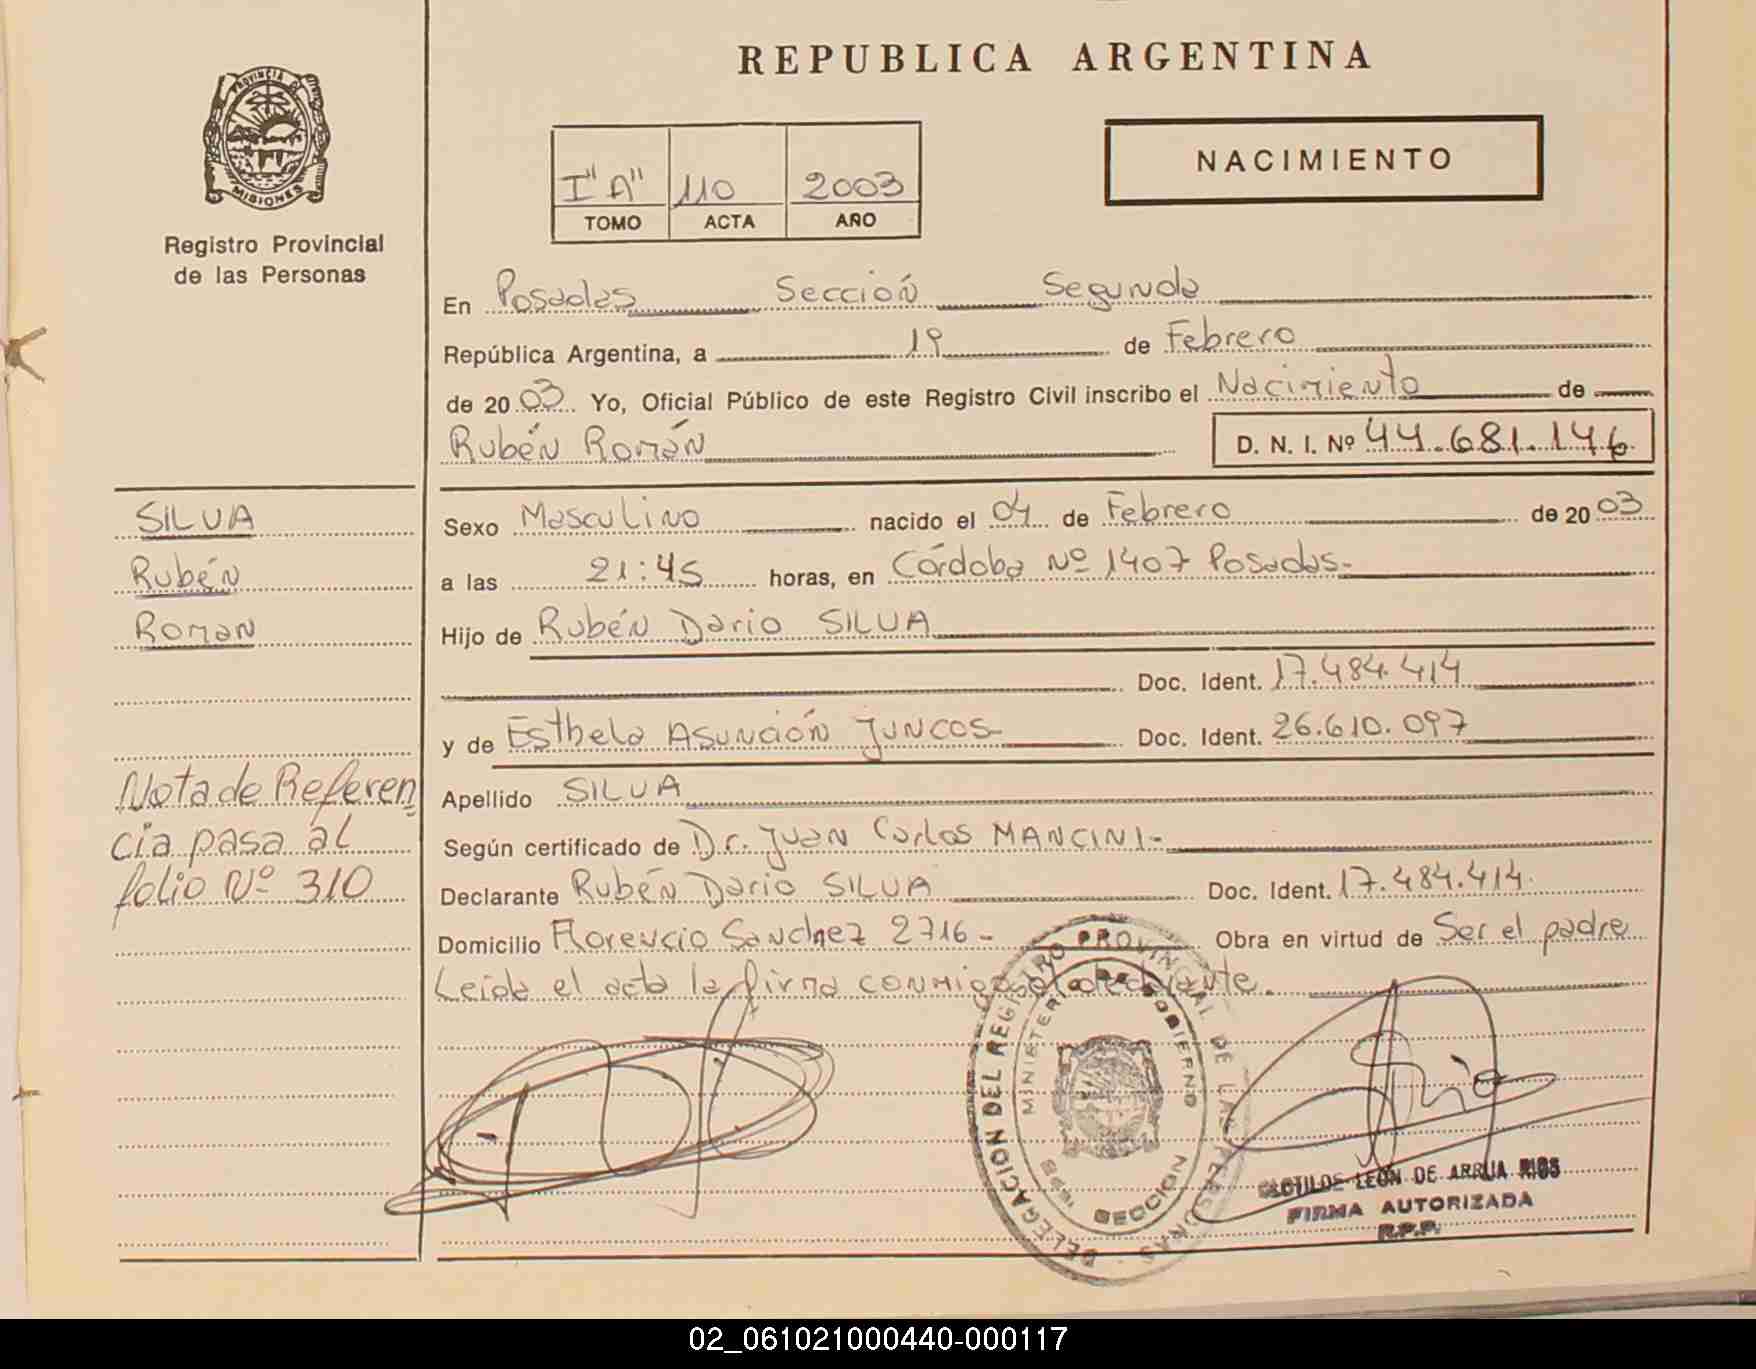 REPUBLICA ARGENTINA
PROVINCIA DE
MISIONES
Registro Provincial
de las Personas
I "A" 110 2003
TOMO ACTA AÑO
NACIMIENTO
En Posadas Sección Segunda
República Argentina, a 19 de Febrero
de 2003 Yo, Oficial Público de este Registro Civil inscribo el Nacimiento de
Rubén Román D. N. I. Nº 44.681.146
SILVA
Rubén
Roman
Nota de Referen
cia pasa al
folio Nº 310
Sexo Masculino nacido el 04 de Febrero de 2003
a las 21:45 horas, en Córdoba Nº 1407 Posadas-
Hijo de Rubén Dario SILVA
Doc. Ident. 17.484.414
y de Esthela Asunción JUNCOS- Doc. Ident. 26.610.097
Apellido SILVA
Según certificado de Dr. Juan Carlos MANCINI-
Declarante Rubén Dario SILVA Doc. Ident. 17.484.414.
Domicilio Florencio Sanchez 2716- Obra en virtud de Ser el padre
Leida el acta la firma conmigo el declarante.
DELEGACION DEL REGISTRO PROVINCIAL DE LAS PERSONAS
MINISTERIO DE GOBIERNO
SECCION
CLOTILDE LEON DE ARRUA RIOS
FIRMA AUTORIZADA
R.P.P.
02_061021000440-000117